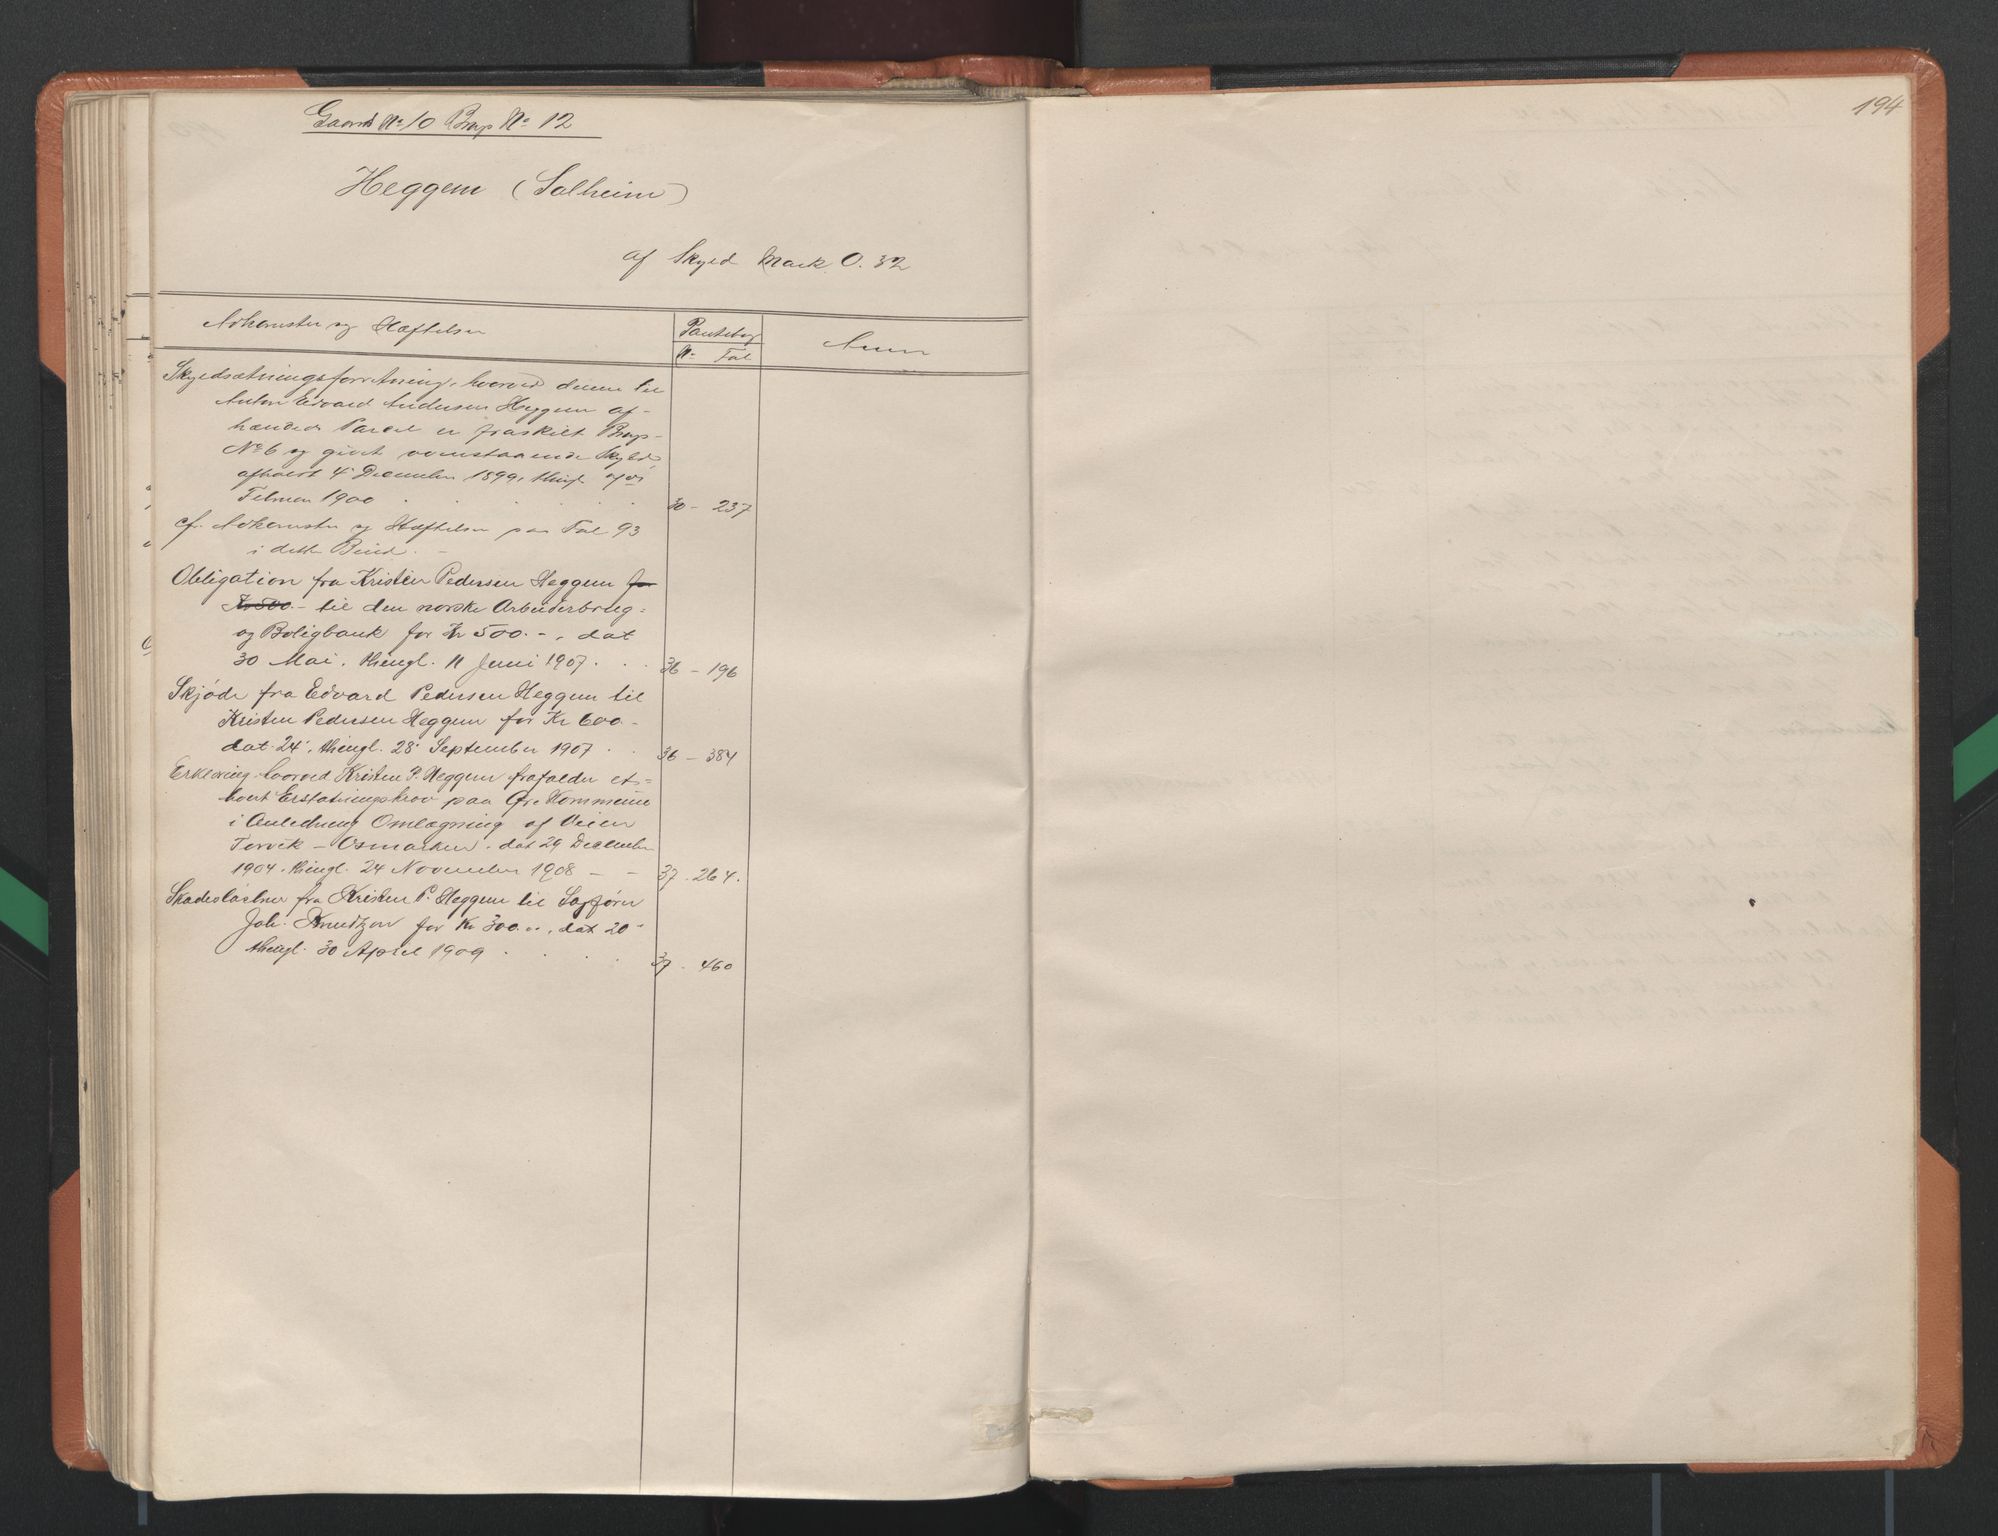 194
Gaards No 10 Brugs No 12
Heggem (Solheim)
af Skyld Mark 0.32
Adkomster og Hæftelser
Pantebog
Anm
No Fol
Skyldsætningsforretning, hvorved denne til
Anton Edvard Andersen Heggem af-
hændede Parcel er fraskilt Brugs-
No 6 og givet ovenstaaende Skyld
afholdt 4 December 1899, thingl.
Februar 1900 . . . . 30 - 237
cfr. Adkomster og Hæftelser paa Fol 93
i dette Bind. -
Obligation fra Kristen Pedersen Heggem for
Kr 500.- til den norske Arbeiderbrug=
og Boligbank for Kr 500.-, dat
30 Mai, thingl. 11 Juni 1907 . . 36 - 196
Skjøde fra Edvard Pedersen Heggem til
Kristen Pedersen Heggem for Kr 600.-
dat 24', thingl. 28' September 1907 . . 36 - 384
Erklæring hvorved Kristen P. Heggem frafalder et=
hvert Erstatningskrav paa Øre Kommune
i Anledning Omlægning af Veien
Torvik - Osmarken. dat 29 December
1904. thingl. 24 November 1908 - - 37 . 264.
Skadesløsbrev fra Kristen P. Heggem til Sagfører
Joh. Knudtzon for Kr 300.-, dat 20-
thingl. 30 April 1909 . . . . 37 . 460